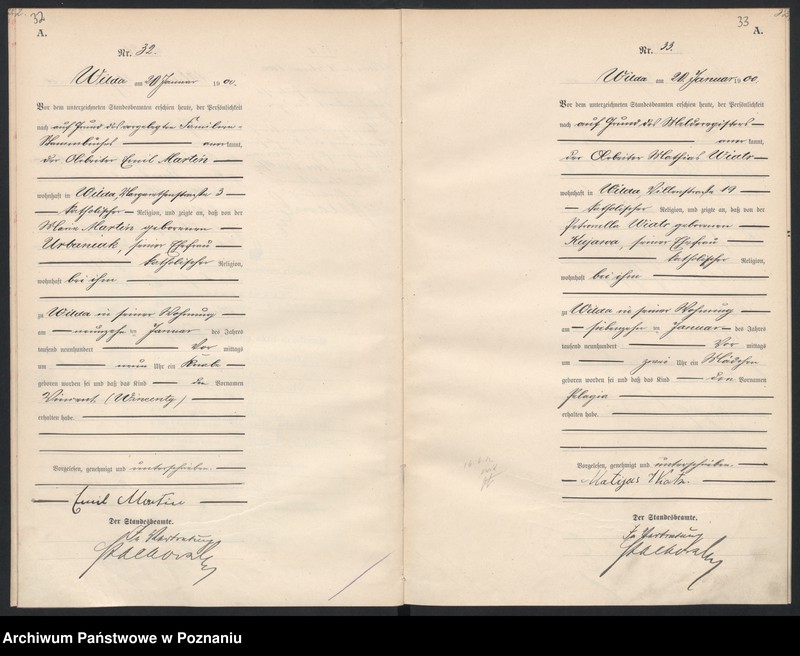 32
A.
Nr. 32.
Wilda am 20 Januar 1900.
Vor dem unterzeichneten Standesbeamten erschien heute, der Persönlichkeit
nach auf Grund des vorgelegten Familien-
Stammbuches anerkannt,
der Arbeiter Emil Martin
wohnhaft in Wilda, Margarethenstraße 3
katholischer Religion, und zeigte an, daß von der
Marie Martin geborenen
Urbaniak, seiner Ehefrau
katholischer Religion,
wohnhaft bei ihm
zu Wilda in seiner Wohnung
am neunzehn ten Januar des Jahres
tausend neunhundert Vor mittags
um neun Uhr ein Knabe
geboren worden sei und daß das Kind den Vornamen
Vincent (Wincenty)
erhalten habe.
Vorgelesen, genehmigt und unterschrieben.
Emil Martin
Der Standesbeamte.
In Vertretung
33
A.
Nr. 33.
Wilda am 20. Januar 1900.
Vor dem unterzeichneten Standesbeamten erschien heute, der Persönlichkeit
nach auf Grund des Melderegisters
anerkannt,
der Arbeiter Mathias
wohnhaft in Wilda, 19
katholischer Religion, und zeigte an, daß von der
Petronella geborenen
Kujawa, seiner Ehefrau
katholischer Religion,
wohnhaft bei ihm
zu Wilda in seiner Wohnung
am siebenzehn ten Januar des Jahres
tausend neunhundert Vor mittags
um zwei Uhr ein Mädchen
geboren worden sei und daß das Kind den Vornamen
Pelagia
erhalten habe.
Vorgelesen, genehmigt und unterschrieben.
Matijas
Der Standesbeamte.
In Vertretung
Archiwum Państwowe w Poznaniu